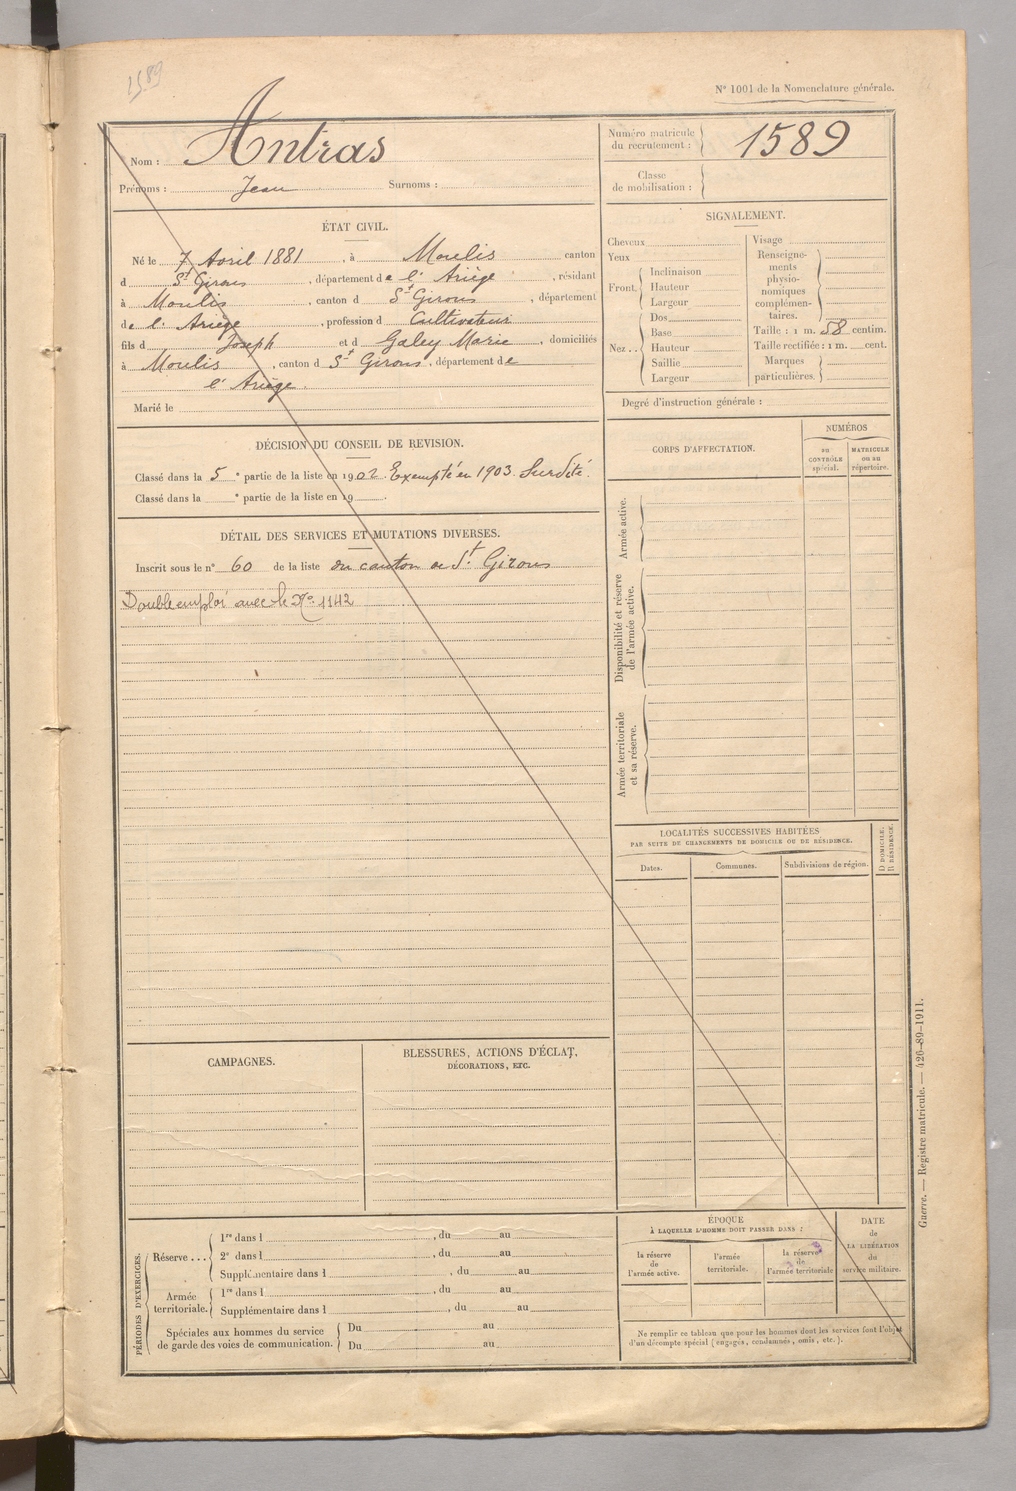 1589
N° 1001 de la Nomenclature générale.
Nom : Antras
Prénoms : Jean Surnoms :
Numéro matricule du recrutement : 1589
Classe de mobilisation :
ÉTAT CIVIL.
Né le 7 Avril 1881, à Moulis canton
d St Girons, département de l'Ariège, résidant
à Moulis, canton d St Girons, département
de l'Ariège, profession d Cultivateur
fils d Joseph et d Galey Marie, domiciliés
à Moulis, canton d St Girons, département de
l'Ariège.
Marié le
SIGNALEMENT.
Cheveux
Yeux
Front. Inclinaison
Hauteur
Largeur
Nez.. Dos
Base
Hauteur
Saillie
Largeur
Visage
Renseigne-
ments
physio-
nomiques
complémen-
taires.
Taille : 1 m. 58 centim.
Taille rectifiée : 1 m. cent.
Marques
particulières.
Degré d'instruction générale :
DÉCISION DU CONSEIL DE REVISION.
Classé dans la 5e partie de la liste en 1902. Exempté en 1903. Surdité.
Classé dans la e partie de la liste en 19
DÉTAIL DES SERVICES ET MUTATIONS DIVERSES.
Inscrit sous le n° 60 de la liste du canton de St Girons
Double emploi avec le No. 1142
CORPS D'AFFECTATION.
NUMÉROS
au CONTRÔLE spécial.
MATRICULE ou au répertoire.
Armée active.
Disponibilité et réserve de l'armée active.
Armée territoriale et sa réserve.
LOCALITÉS SUCCESSIVES HABITÉES
PAR SUITE DE CHANGEMENTS DE DOMICILE OU DE RÉSIDENCE.
Dates.
Communes.
Subdivisions de région.
D DOMICILE. R RÉSIDENCE.
CAMPAGNES.
BLESSURES, ACTIONS D'ÉCLAT,
DÉCORATIONS, ETC.
PÉRIODES D'EXERCICES.
Réserve ... 1re dans l , du au
2e dans l , du au
Supplémentaire dans l , du au
Armée territoriale. 1re dans l , du au
Supplémentaire dans l , du au
Spéciales aux hommes du service
de garde des voies de communication. Du au
Du au
ÉPOQUE
À LAQUELLE L'HOMME DOIT PASSER DANS :
la réserve de l'armée active.
l'armée territoriale.
la réserve de l'armée territoriale
DATE de LA LIBÉRATION du service militaire.
Ne remplir ce tableau que pour les hommes dont les services font l'objet
d'un décompte spécial (engagés, condamnés, omis, etc.).
Guerre. — Registre matricule. — 426-89-1911.